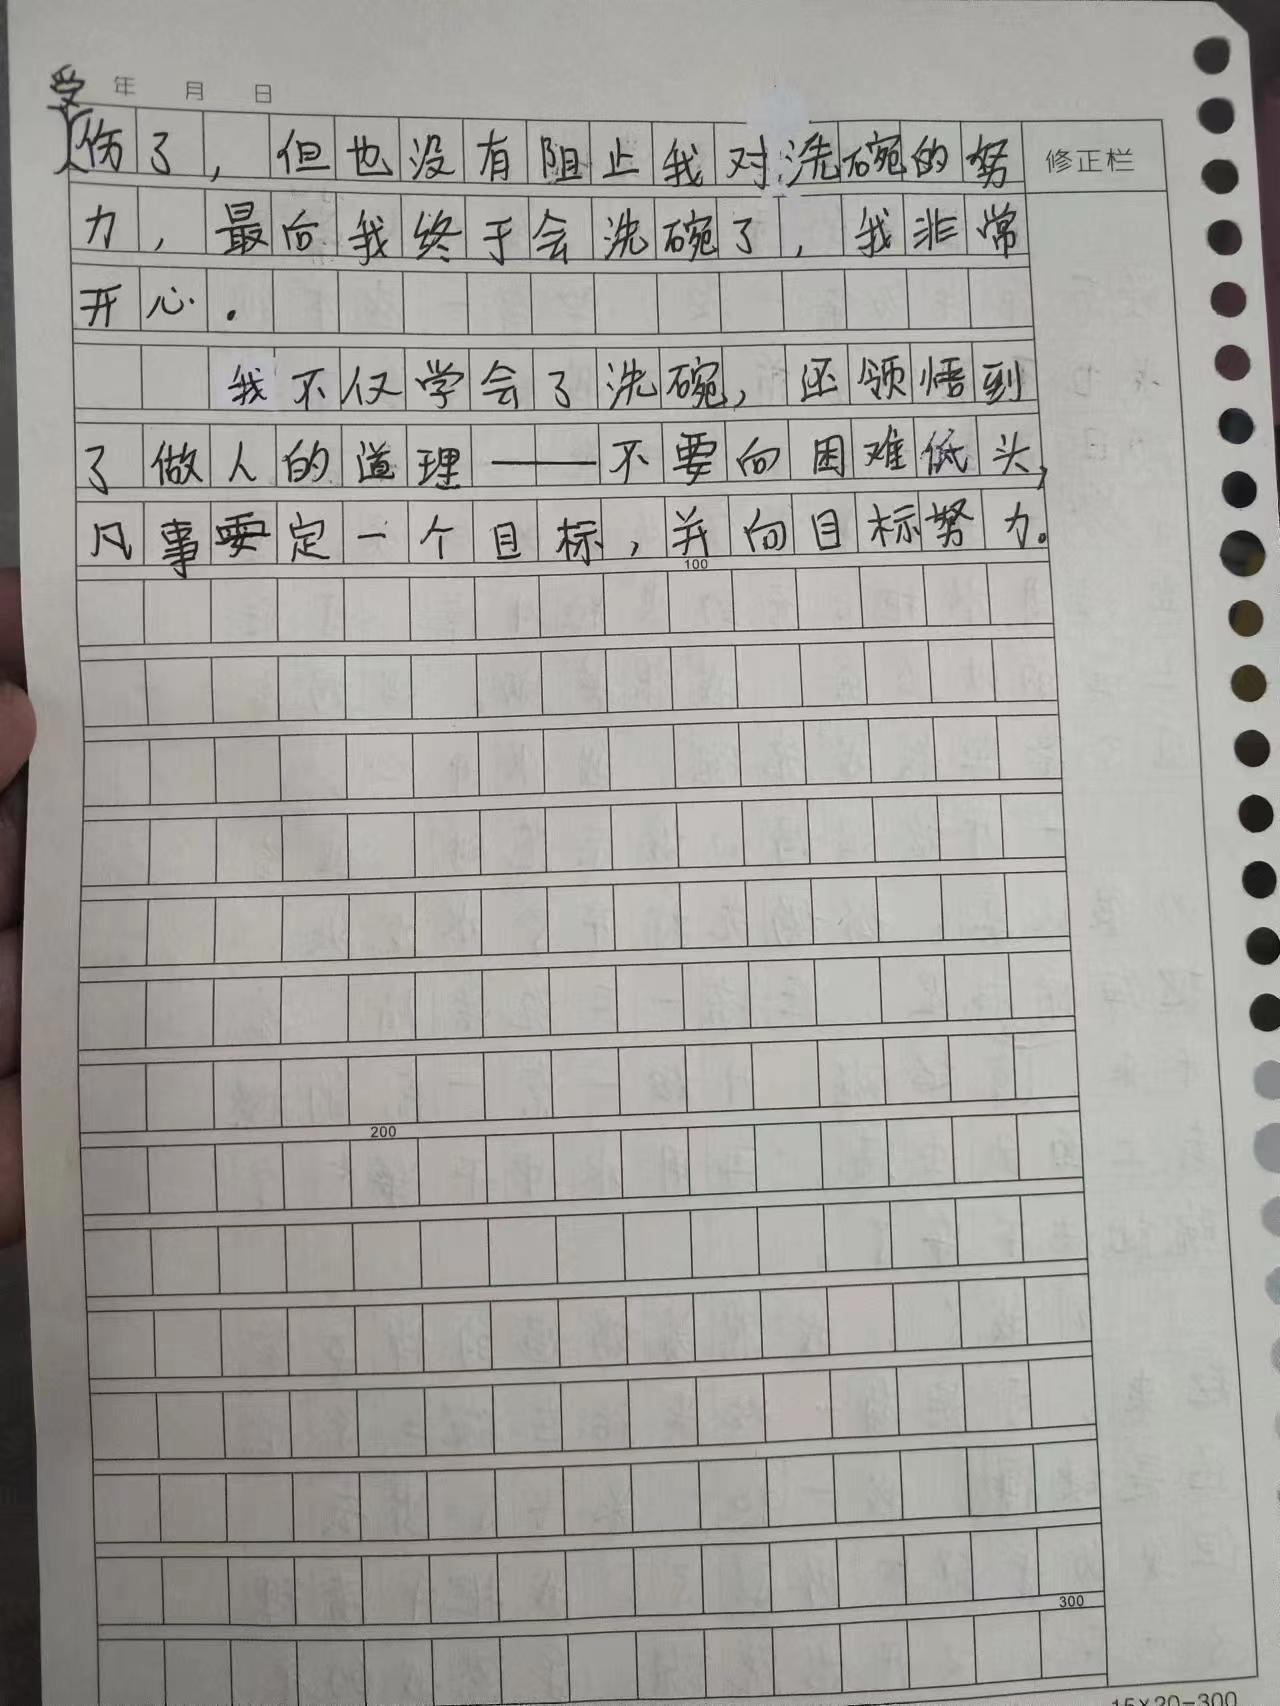 年 月 日
受伤了，但也没有阻止我对洗碗的努
修正栏
力，最后我终于会洗碗了，我非常
开心.
我不仅学会了洗碗，还领悟到
了做人的道理——不要向困难低头，
凡事要定一个目标，并向目标努力。
100
200
300
15×20=300